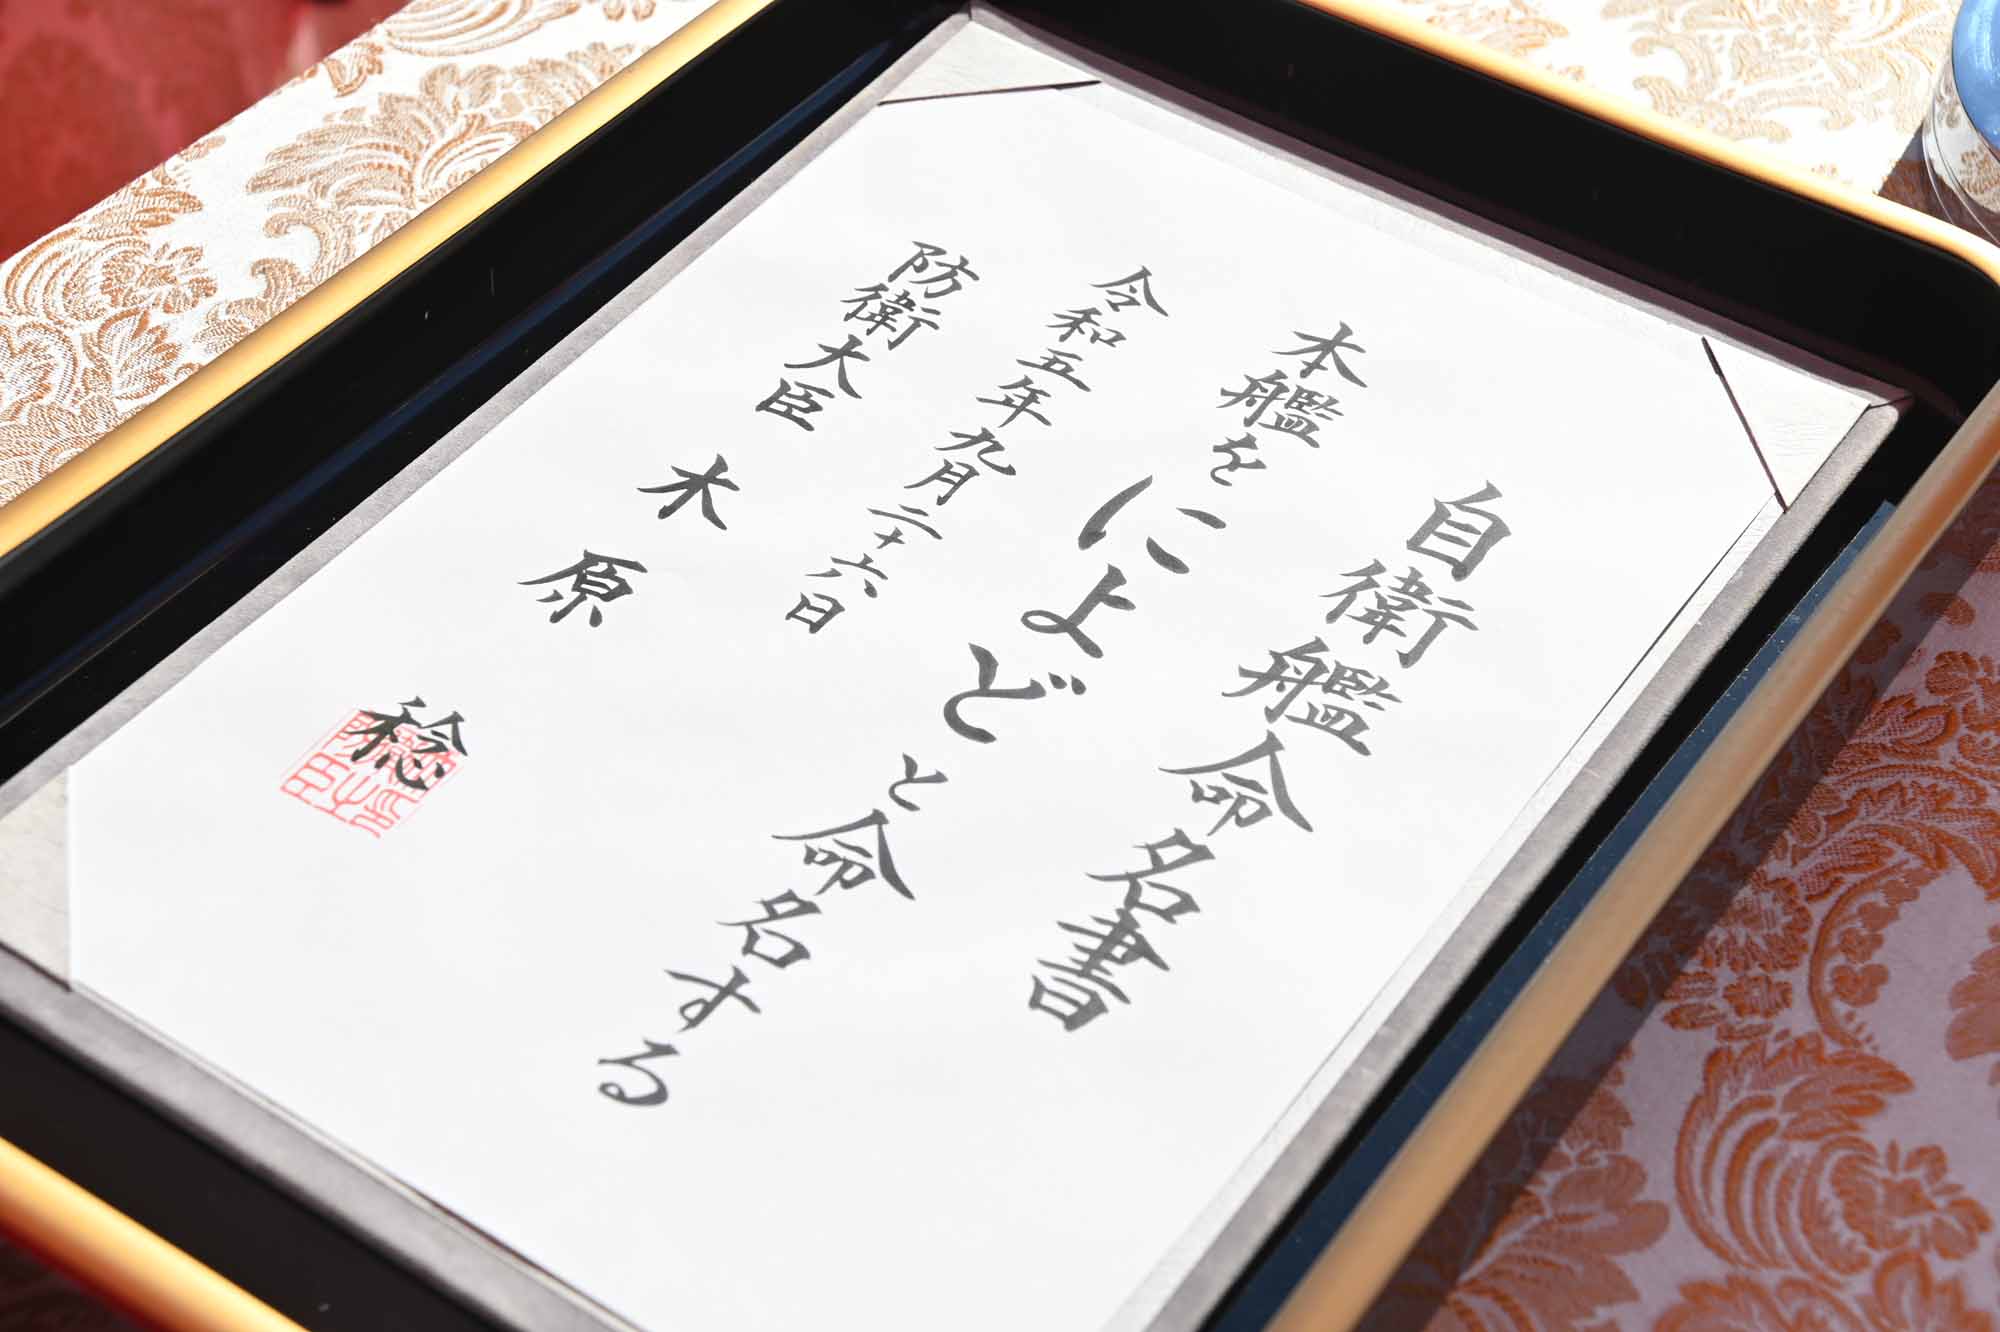 自衛艦命名書
本艦をによどと命名する
令和五年九月二十六日
防衛大臣 木原 稔
防衛大臣之印